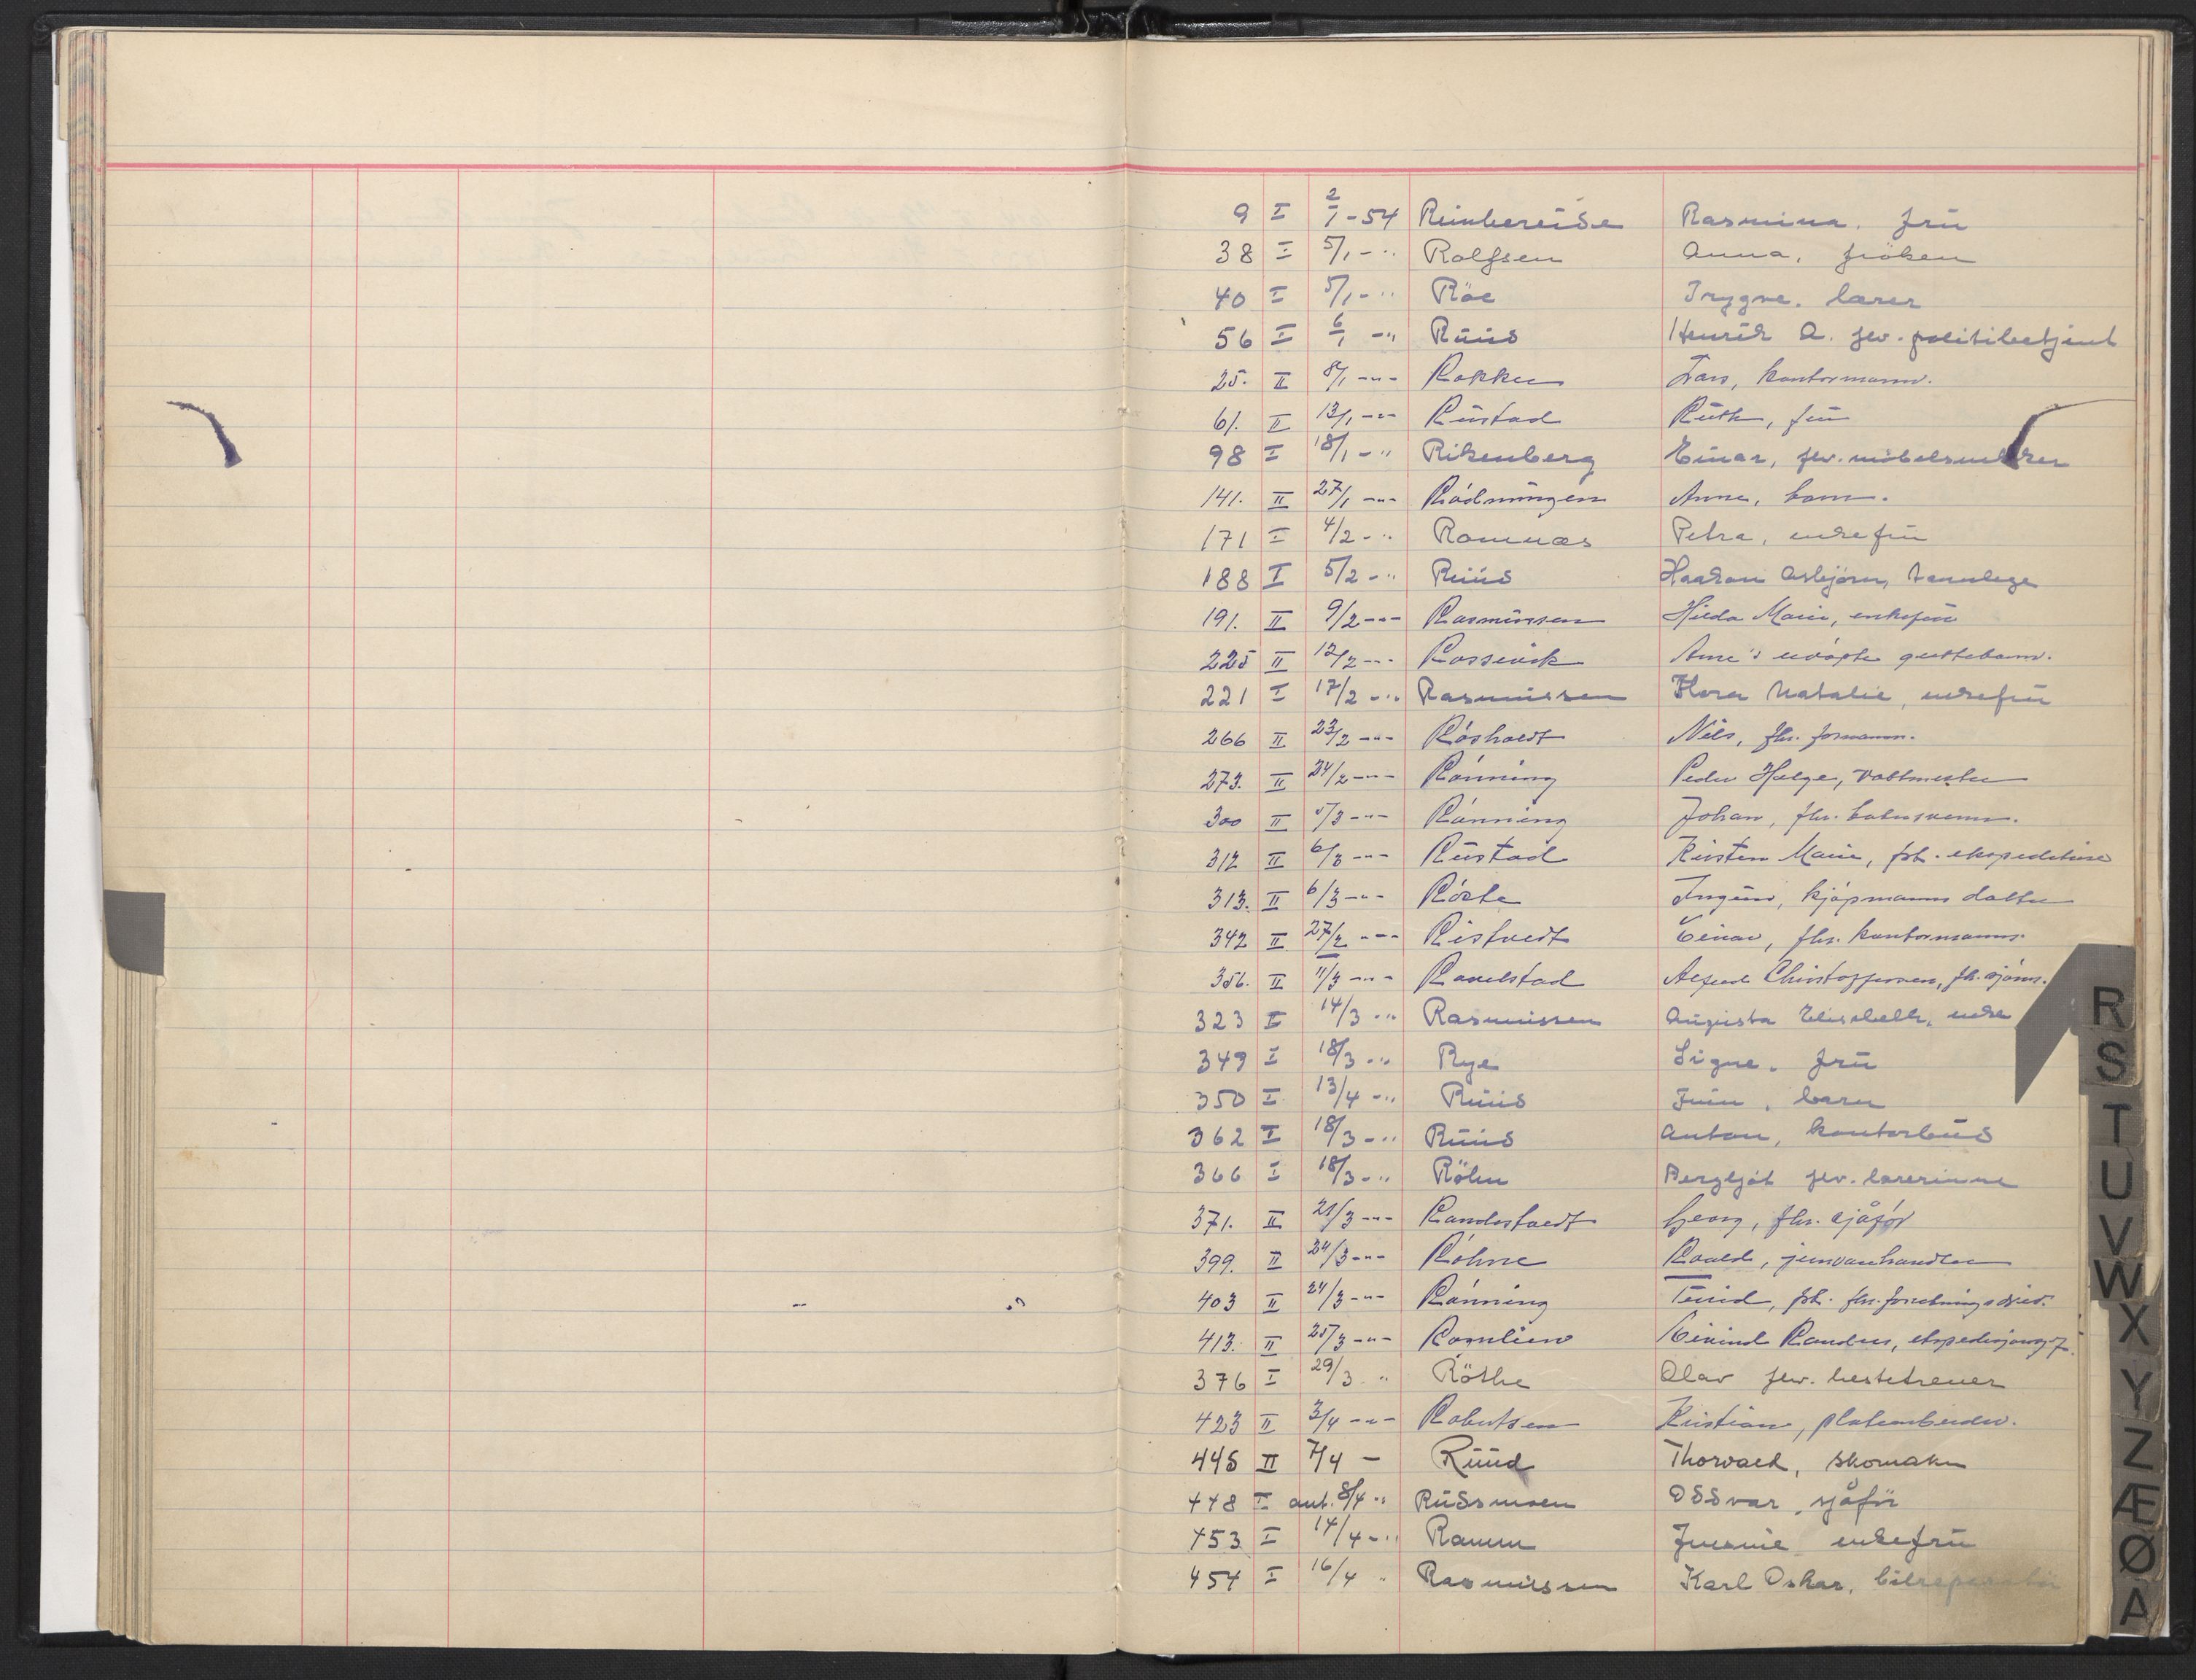 9 I 2/1-54 Reinhereide Rasmina, frü
38 I 5/1-" Rolfsen Anna, fröken
40 I 5/1-" Röe Trygve, lærer
56 I 6/1-" Rüüd Henrik A. fev. politibetjent
25. II 8/1-"- Rokke kontormann.
61. II 13/1-"- Rüstad Rüth, frü
98 I 18/1-" Rikenberg Einar, fev. möbelsnekker
141. II 27/1-"- Rödningen Anne, barn.
171 I 4/2-" Romnæs Petra, enkefrü
188 I 5/2-" Rüüd Haakon Asbjörn, tannlege
191. II 9/2-"- Rasmüssen Hilda Marie, enkefrü
225 II 12/2-"- Rossvick Arne's udöpte guttebarn.
221 I 17/2-" Rasmüssen Flora Natalie, enkefrü
266 II 23/2-"- Röshoedt Nils, fhv. formann.
273. II 24/2-"- Rönning Peder Helge, vaktmester
300 II 5/3-"- Rönning Johan, fhv.
312 II 6/3-"- Rüstad Kirsten Marie, frk. ekspeditrise
313. II 6/3-"- Röste Ingünn, kjöpmanns datter
342 II 27/2-"- Ristvedt Einar, fhv. kontormann.
356. II 11/3-"- Ravelstad Alfred Christoffersen, fh. sjöm.
323 I 14/3-" Rasmüssen Aügüsta Elisabeth, enke
349 I 18/3-" Rye Signe, frü
350 I 13/4-" Rüüd barn
362 I 18/3-" Rüüd Anton, kontorbüd
366 I 18/3-" Röhn Bergljot fev. lærerinne
371. II 21/3-"- Randstvedt Georg, fhv. sjåför
399. II 24/3-"- Röhne Roald, jernvarehandler
403 II 24/3-"- Rönning Türid, frk.
413. II 25/3-"- Romlien Eivind Randus,
376 I 29/3 " Röthe Olav fev. hestetrener
423 II 3/4-"- Robertsen Kristian, platearbeider.
445 II 7/4 - Rüüd Thorvald, skomaker
448 I ank. 8/4-" Rüdsmoen Oddvar, sjåför
453 I 14/4-" Ramm enkefrü
454 I 16/4 " Rasmüssen Karl Oskar, bilreparatör
R
S
T
U
V
W
X
Y
Z
Æ
Ø
A